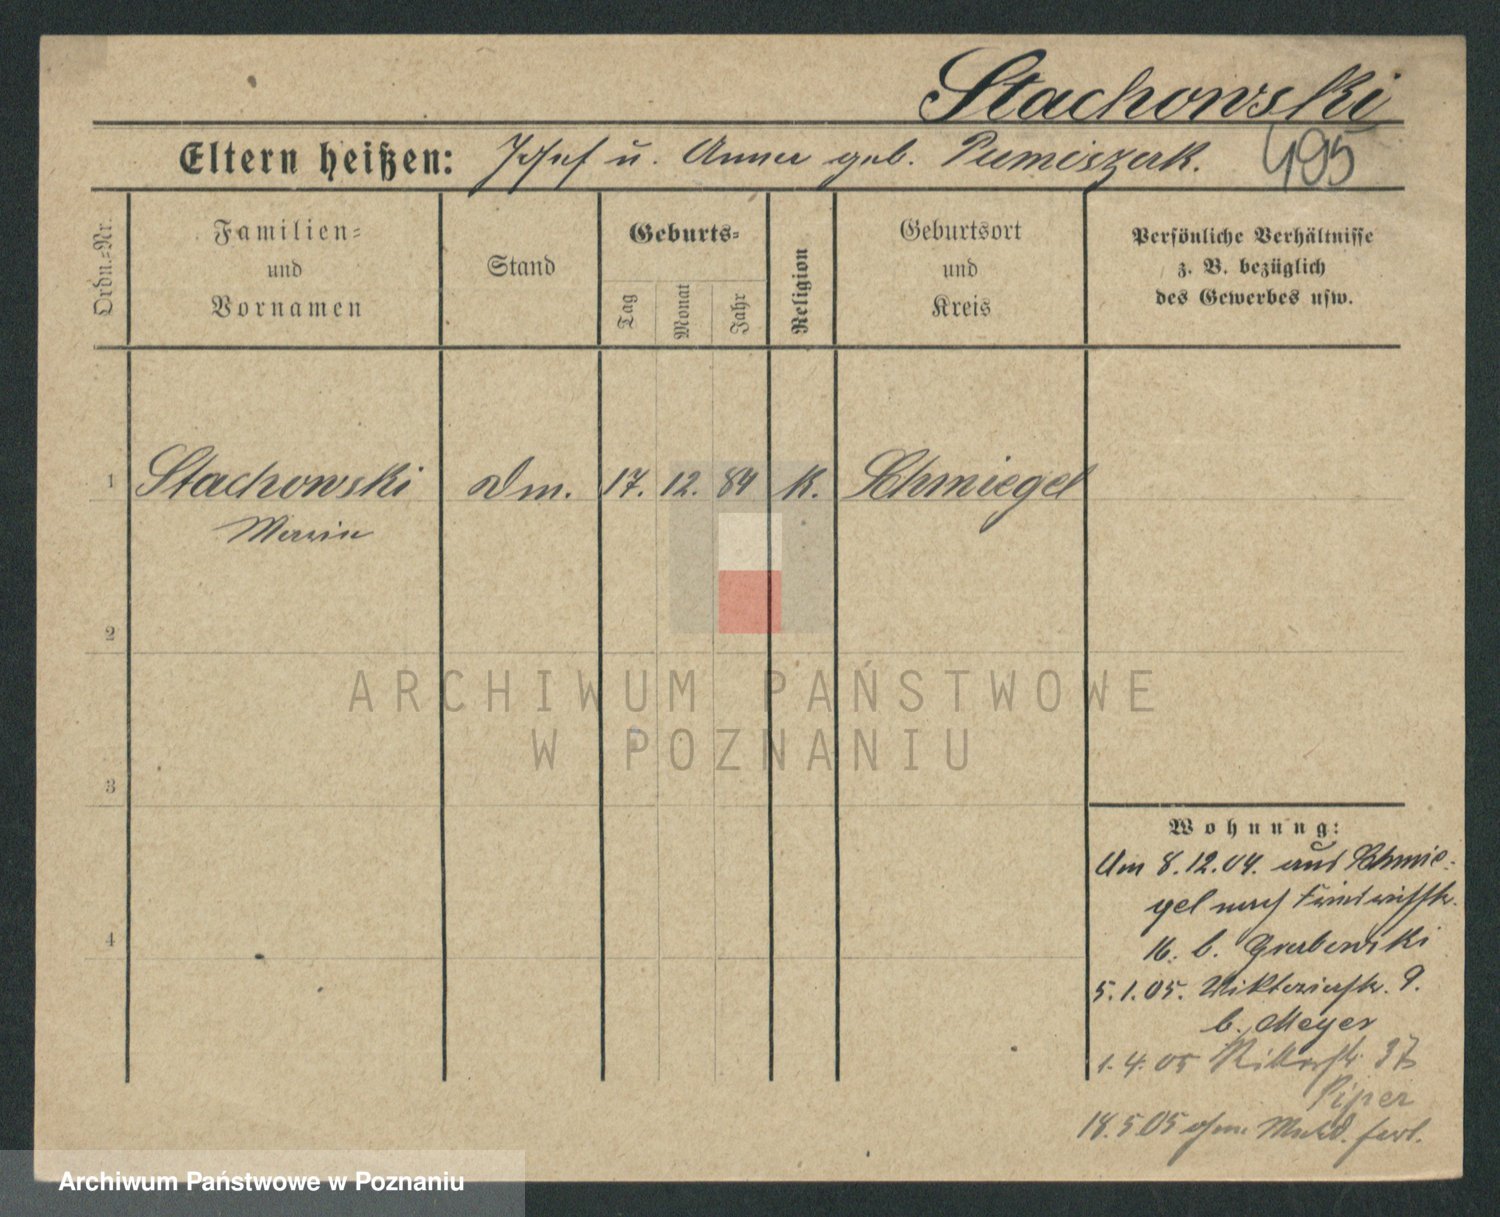 Stachowski
Eltern heißen: Josef u. Anna geb. 495
Ordn.-Nr.
Familien-
und
Vornamen
Stand
Geburts-
Tag
Monat
Jahr
Religion
Geburtsort
und
Kreis
Persönliche Verhältnisse
z. B. bezüglich
des Gewerbes usw.
1 Stachowski Dm. 17. 12. 84 K. Schmiegel
Maria
2
3
4
ARCHIWUM PAŃSTWOWE
W POZNANIU
Wohnung:
Am 8.12.04. aus Schmie-
gel nach
16. b. Grabowski
5.1.05. Viktoriastr. 9.
b. Meyer
1.4.05 Ritterstr. 37
Piper
18.5.05 ohne Meld. fort.
Archiwum Państwowe w Poznaniu